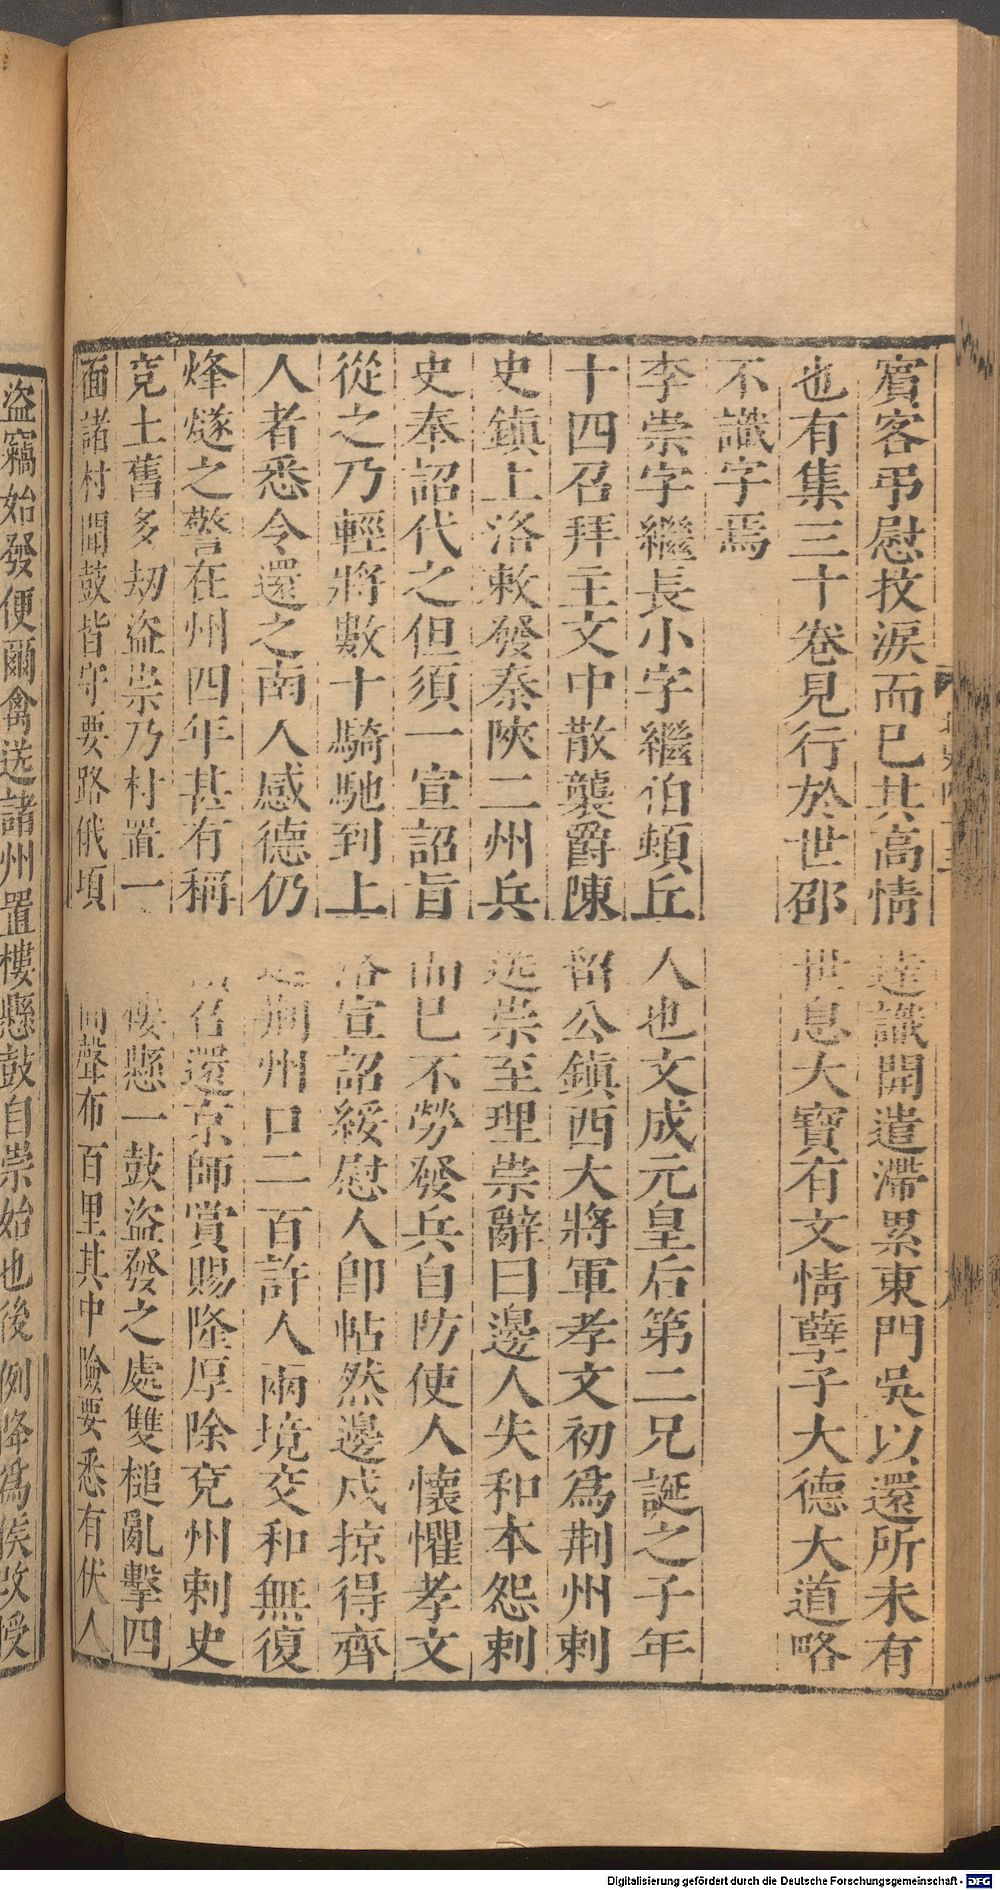 賔客弔慰抆淚而巳其高情達識開遣滯累東門吳以還所未有
也有集三十卷見行於世邵世息大寶有文情孽子大德大道略
不識字焉
李崇字繼長小字繼伯頓丘人也文成元皇后第二兄誕之子年
十四召拜主文中散襲爵陳留公鎮西大將軍孝文初爲荆州刺
史鎮上洛敕發秦陝二州兵送崇至理崇辭曰邊人失和本怨刺
史奉詔代之但須一宣詔旨而巳不勞發兵自防使人懷懼孝文
從之乃輕將數十騎馳到上洛宣詔綏慰人卽帖然邊戍掠得齊
人者悉令還之南人感德仍送荆州口二百許人兩境交和無復
烽燧之警在州四年甚有稱召還京師賞賜隆厚除兗州刺史
兗土舊多劫盗崇乃村置一樓懸一鼓盗發之處雙槌亂擊四
面諸村聞鼓皆守要路俄頃間聲布百里其中險要悉有伏人
盜竊始發便爾禽送諸州置樓懸鼓自崇始也後例降爲侯改授
Digitalisierung gefördert durch die Deutsche Forschungsgemeinschaft - DFG